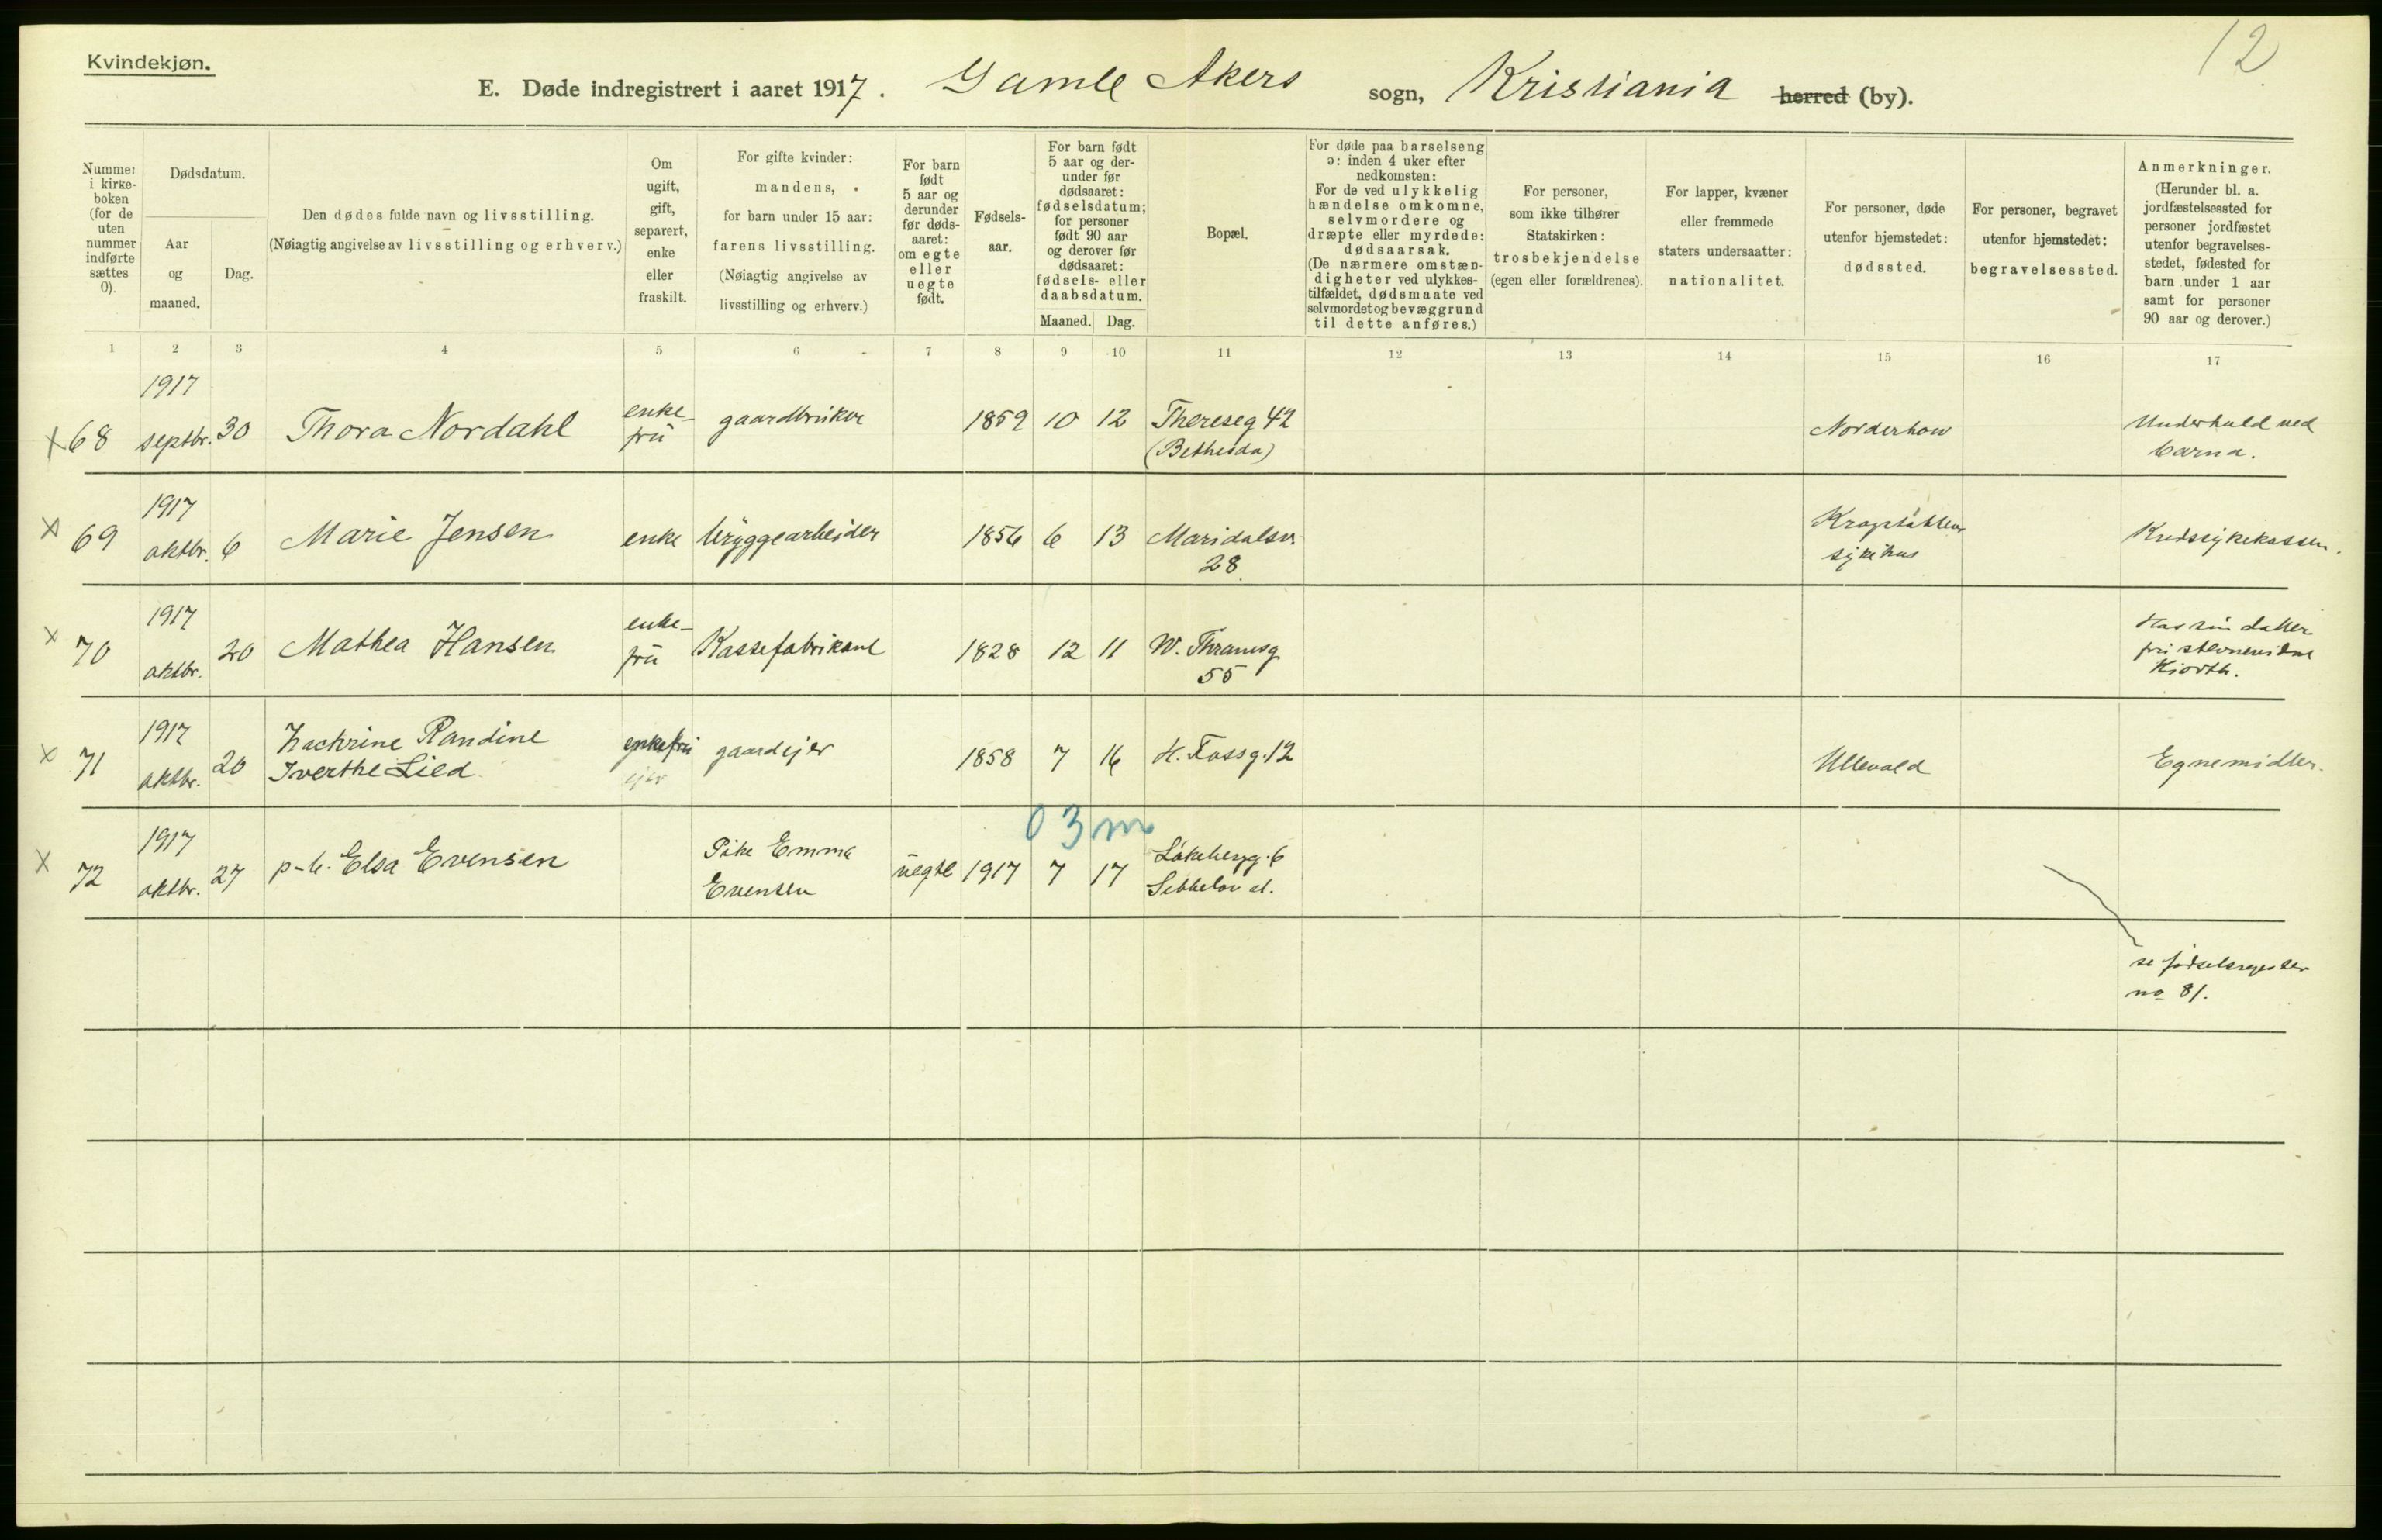 12
Kvindekjøn.
E. Døde indregistrert i aaret 1917. Gamle Akers sogn, Kristiania herred (by).
Nummer i kirke-boken (for de uten nummer indførte sættes 0).
Dødsdatum.
Aar og maaned.
Dag.
Den dødes fulde navn og livsstilling.
(Nøiagtig angivelse av livsstilling og erhverv.)
Om ugift, gift, separert, enke eller fraskilt.
For gifte kvinder: mandens, for barn under 15 aar: farens livsstilling. (Nøiagtig angivelse av livsstilling og erhverv.)
For barn født 5 aar og derunder før døds-aaret: om egte eller uegte født.
Fødsels-aar.
For barn født 5 aar og der-under før dødsaaret: fødselsdatum; for personer født 90 aar og derover før dødsaaret: fødsels- eller daabsdatum.
Maaned. Dag.
Bopæl.
For døde paa barselseng ɔ: inden 4 uker efter nedkomsten: For de ved ulykkelig hændelse omkomne, selvmordere og dræpte eller myrdede: dødsaarsak. (De nærmere omstæn-digheter ved ulykkes-tilfældet, dødsmaate ved selvmordet og bevæggrund til dette anføres.)
For personer, som ikke tilhører Statskirken: trosbekjendelse (egen eller forældrenes).
For lapper, kvæner eller fremmede staters undersaatter: nationalitet.
For personer, døde utenfor hjemstedet: dødssted.
For personer, begravet utenfor hjemstedet: begravelsessted.
Anmerkninger. (Herunder bl. a. jordfæstelsessted for personer jordfæstet utenfor begravelses-stedet, fødested for barn under 1 aar samt for personer 90 aar og derover.)
1 2 3 4 5 6 7 8 9 10 11 12 13 14 15 16 17
x 68 1917 septbr. 30 Thora Nordahl enke-frü gaardbruker 1859 10 12 Thereseg 42 (Bethesda) Norderhow Underhold ved barna.
x 69 1917 oktbr. 6 Marie Jensen enke bryggearbeider 1856 6 13 Maridalsv. 28 sykehus Kredssykekassen.
x 70 1917 oktbr. 20 Mathea Hansen enke-frü Kassefabrikant 1828 12 11 W. Thranesg 55 Hos sin datter Kiorth.
x 71 1917 oktbr. 20 Zachrine Randine Iverthe Lied enkefrü ejer gaardejer 1858 7 16 H. Fossg. 12 Ullevold Egne midler.
03m
x 72 1917 oktbr. 27 p-b. Elsa Evensen Pike Emma Evensen uegte 1917 7 17
se fødselsregister
no 81.